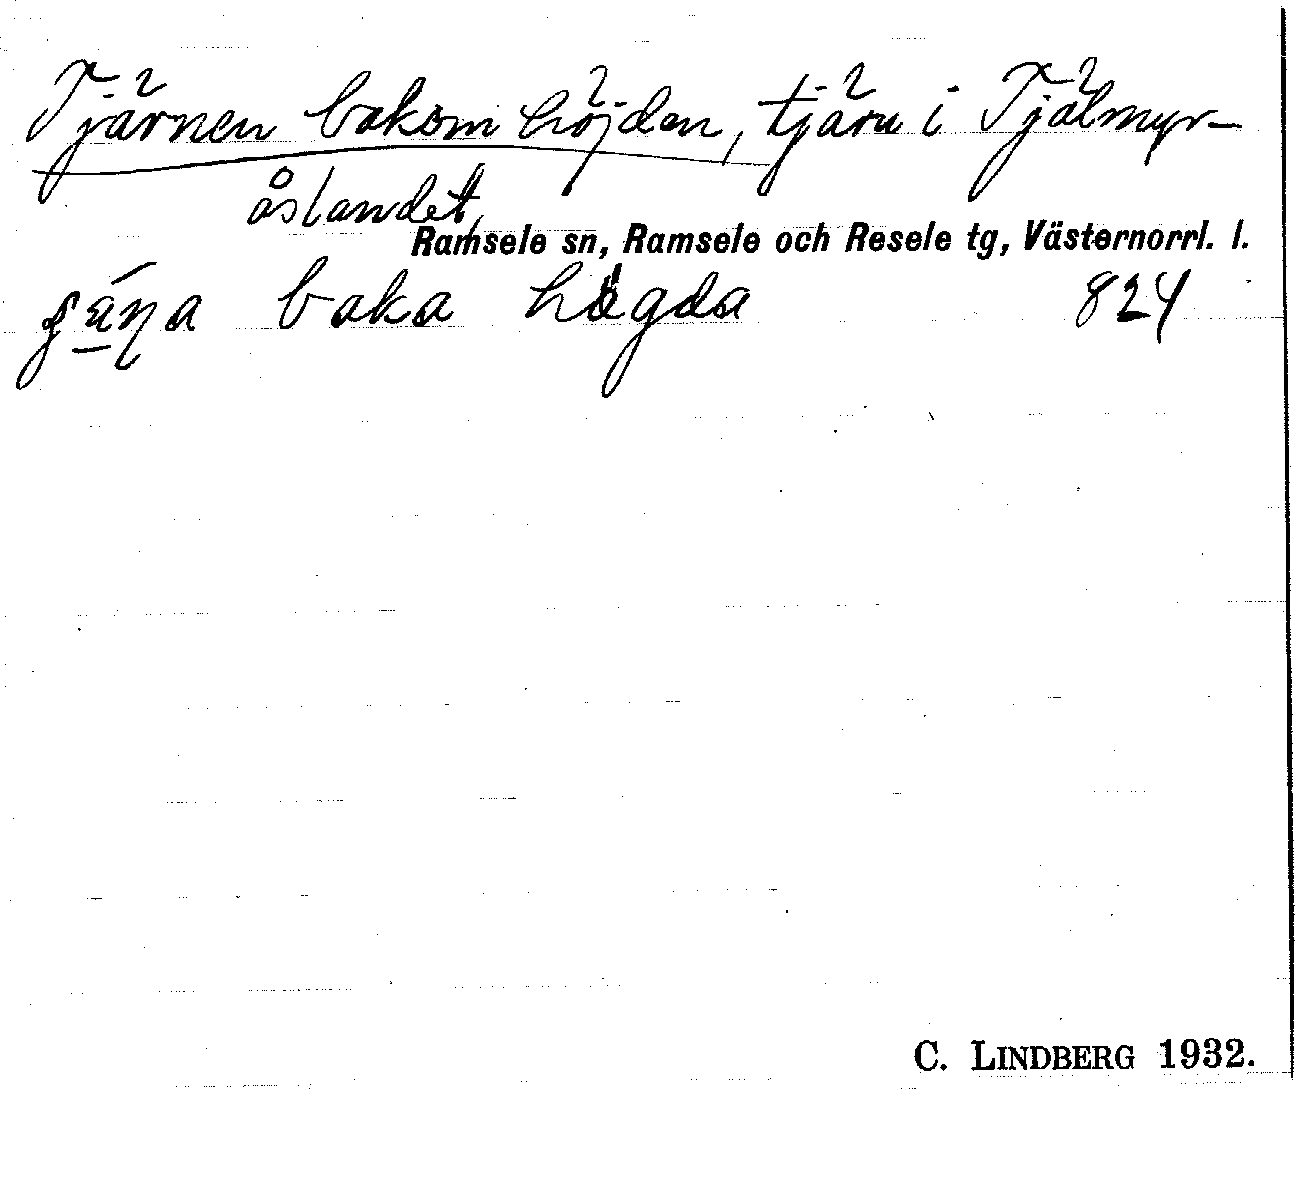 Tjärnen bakom höjden, tjärn i Tjälmyr-
åslandet,
Ramsele sn, Ramsele och Resele tg, Västernorrl. l.
baka högda 824
C. LINDBERG 1932.